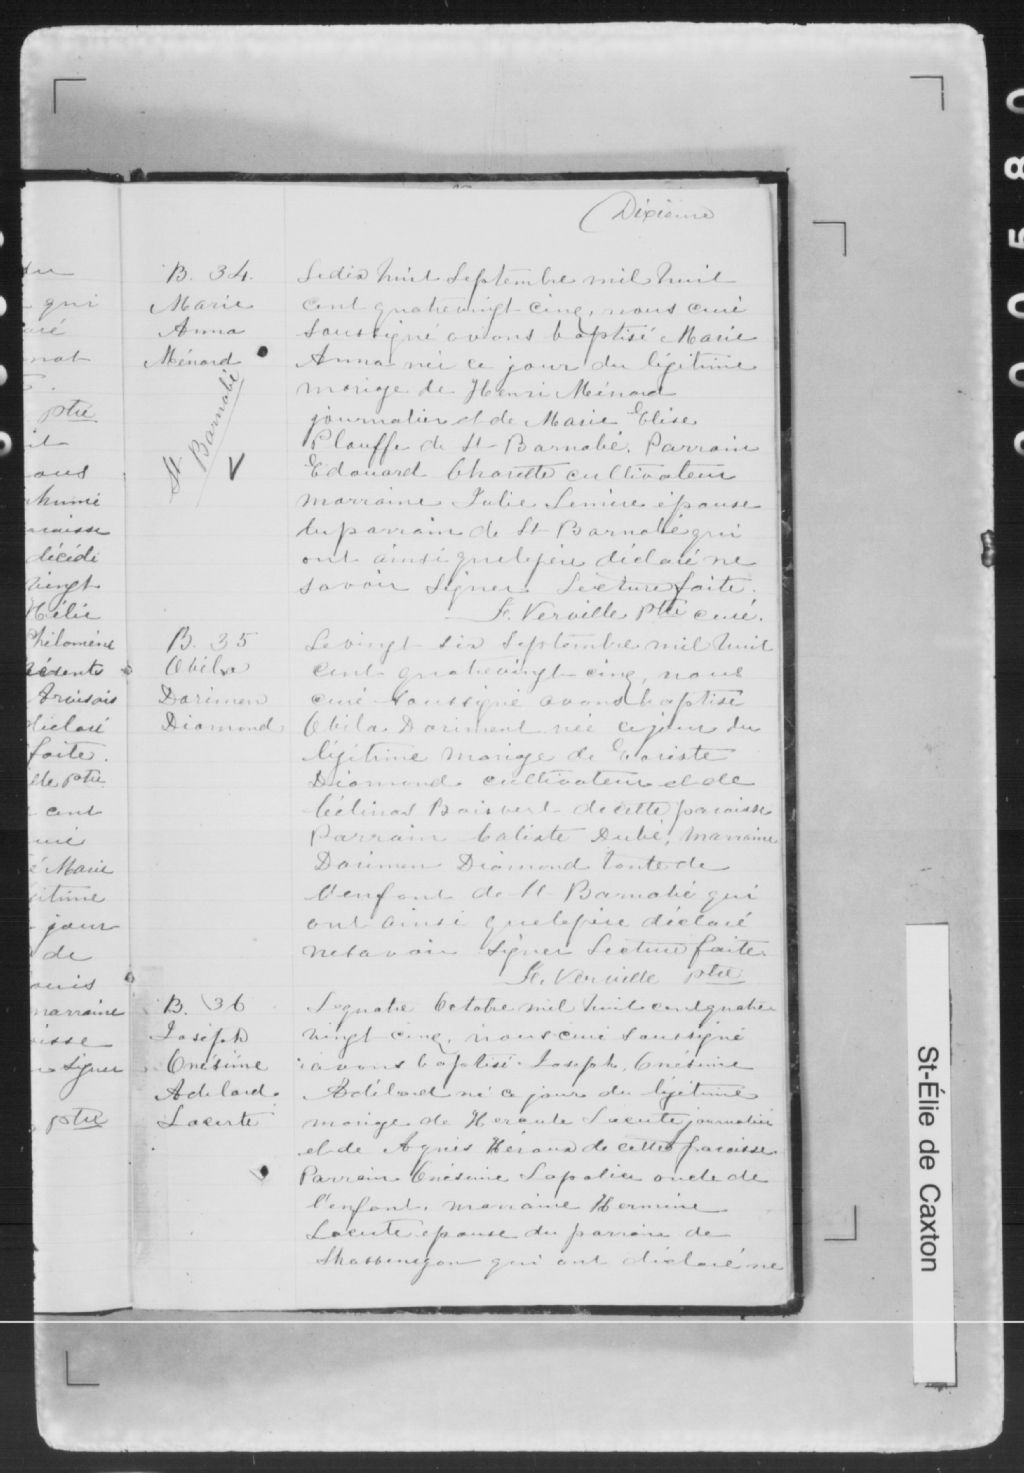 Dixième
B. 34.
Marie
Anna
Ménard
St Barnabé
Le dix huit Septembre mil huit
cent quatrevingt cinq, nous curé
soussigné avons baptisé Marie
Anna née ce jour du légitime
mariage de Henri Ménard
journalier et de Marie Elise
Plouffe de St Barnabé. Parrain
Edouard Charette cultivateur
marraine Julie Lemire épouse
du parrain de St Barnabé qui
ont ainsi que le père déclaré ne
savoir signer Lecture faite.
F. Verville ptre curé.
B. 35
Obila
Darimen
Diamond
Le vingt six Septembre mil huit
cent quatrevingt cinq, nous
curé soussigné avons baptisé
Obila Dariment née ce jour du
légitime mariage de Evariste
Diamond cultivateur et de
Célinas Boisvert de cette paroisse
Parrain Calixte Dubé, marraine
Darimen Diamond tante de
l'enfant de St Barnabé qui
ont ainsi que le père déclaré
ne savoir signer Lecture faite.
F. Verville ptre
B. 36
Joseph
Onésime
Adelard
Lacerte
Le quatre Octobre mil huit cent quatre
vingt cinq, nous curé soussigné
avons baptisé Joseph, Onésime
Adélard né ce jour du légitime
mariage de Hercule Lacerte journalier
et de Agnès Héroux de cette paroisse.
Parrain Onésime Lapolice oncle de
l'enfant, marraine Hermine
Lacerte épouse du parrain de
Shawenegan qui ont déclaré ne
qui
ptre
ous
aroisse
décédé
vingt
Hélie
Philomène
déclaré
faite.
ptre
cent
Marie
jour
de
marraine
signer
ptre
St-Élie de Caxton